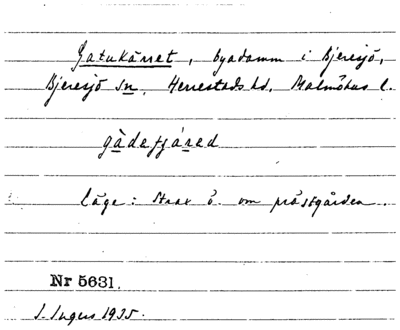 Gatukärret, byadamm i Bjeresjö,
Bjeresjö sn, Herrestads hd, Malmöhus l.
gådefjáred
läge: strax ö. om prästgården.
Nr 5631.
J. Ingers 1935.